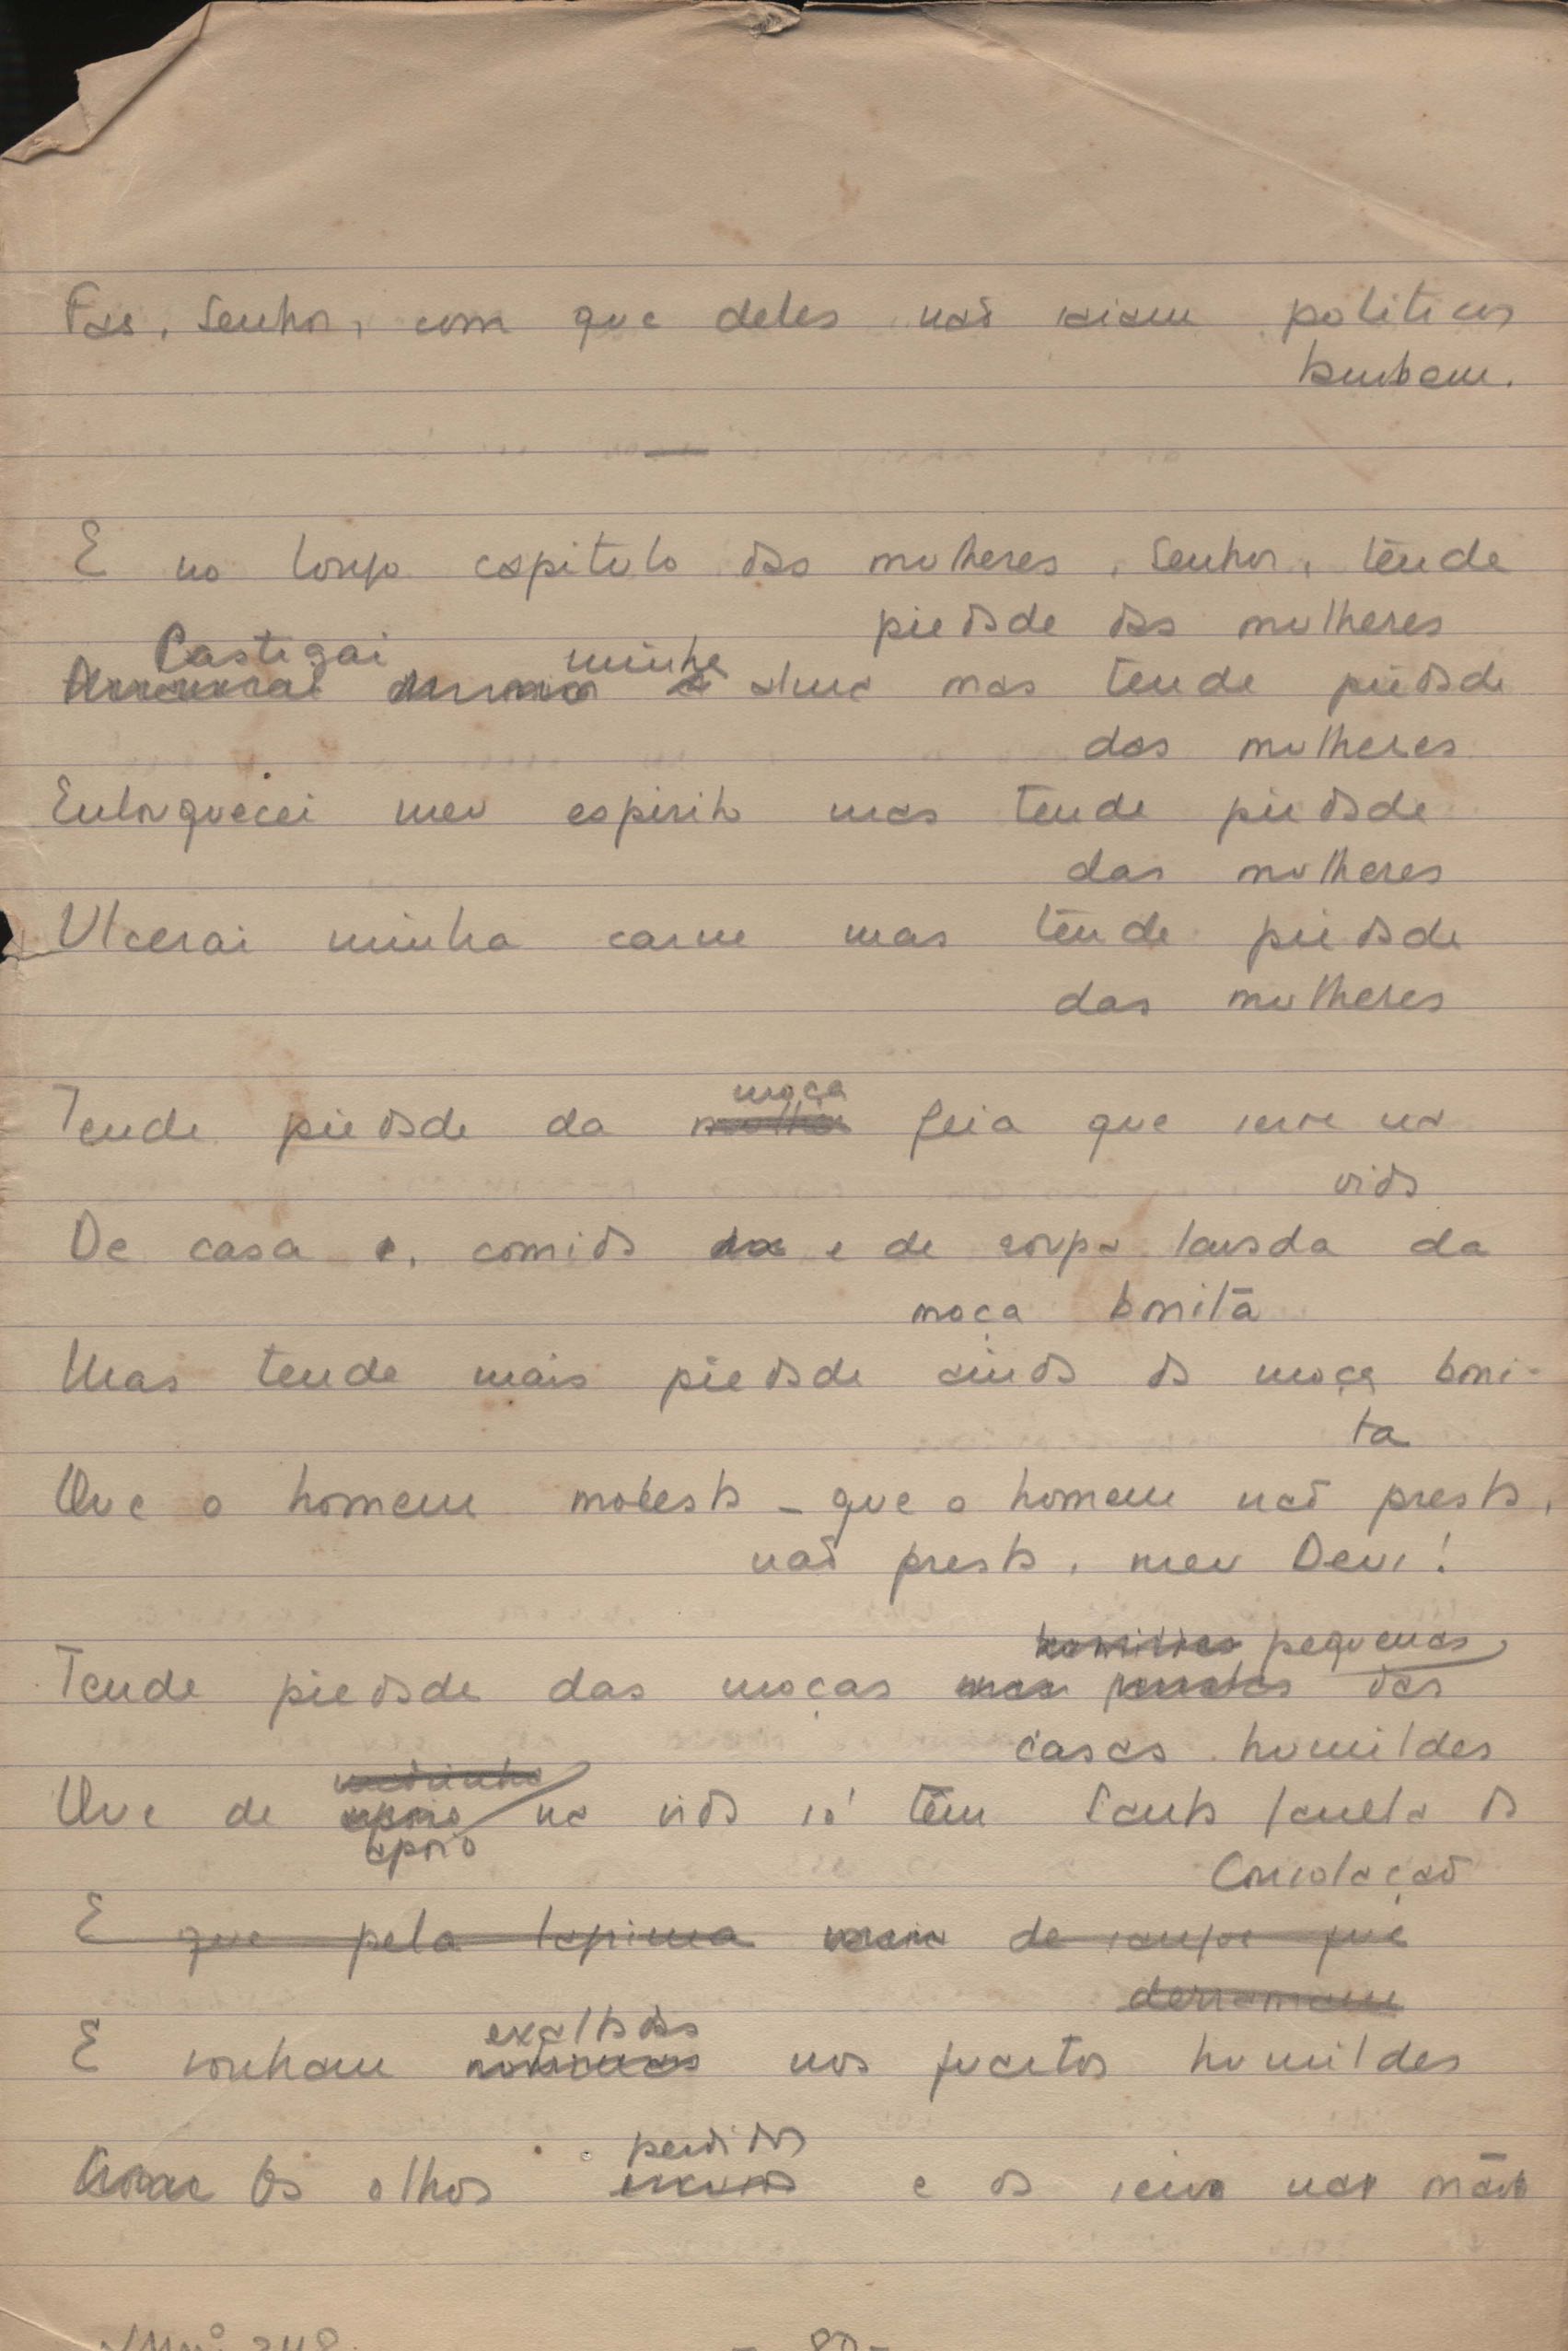 Faz, Senhor, com que deles não saiam politicos
tambem.
—
E no longo capitulo das mulheres, Senhor, tende
piedade das mulheres
Castigai minha
alma mas tende piedade
das mulheres
Enlouquecei meu espirito mas tende piedade
das mulheres
Ulcerai minha carne mas tende piedade
das mulheres
moça
Tende piedade da mulher feia que serve na
vida
De casa, comida e de roupa lavada da
moça bonita
Mas tende mais piedade ainda da moça boni-
ta
Que o homem molesta - que o homem não presta,
não presta, meu Deus!
humildes pequenas
Tende piedade das moças das
casas humildes
Que de apoio na vida só têm Santa Janela da
apoio
Consolação
E que pela lagrima de sangue que
derramam
exaltadas
E sonham nos quartos humildes
perdidos
Os olhos e o seio na mão
- 80 -